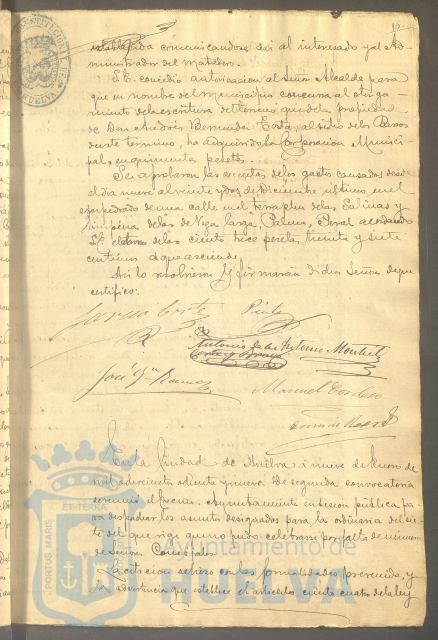 10
establecida comunicandose asi al interesado y al Ad-
ministrador del Matadero.
S.E. concedio autorizacion al Señor Alcalde para
que en nombre del Municipio concurra al otorga-
miento de la escritura del terreno que de la propiedad
de Don Andrés Bermudez Costa, al sitio de los Pasos
de este termino, ha adquirido la Corporacion Munici-
pal, en quinientas pesetas.
Se aprobaron las cuentas de los gastos causados desde
el dia nueve al veinte y dos de Diciembre ultimo en el
empedrado de una calle en el terraplen de las Salinas y
limpieza de las de Vega larga, Palma, Peral acordando
S.E. el abono de las ciento trece pesetas, treinta y siete
centimos a que asciende.
Asi lo resolvieron y firmaran dichos Señores de que
certifico:
Garcia Cortes
Pinto
Antonio de la Corte y Bravo
Antonio Montiel
José Gn Ramos
Manuel Cordero
En la Ciudad de Huelva a nueve de Enero de
mil ochocientos ochenta y nueve de segunda convocatoria
se reunio el Excmo. Ayuntamiento en sesion pública pa-
ra despachar los asuntos designados para la ordinaria del sie-
te del que rige que no pudo celebrarse por falta de numero
de Señores Concejales.
La citacion se hizo con las formalidades prevenidas, y
la advertencia que establece el articulo ciento cuatro de la ley
PORTUS MARIS ET TERRAE
Ayuntamiento de
HUELVA
HUELVA